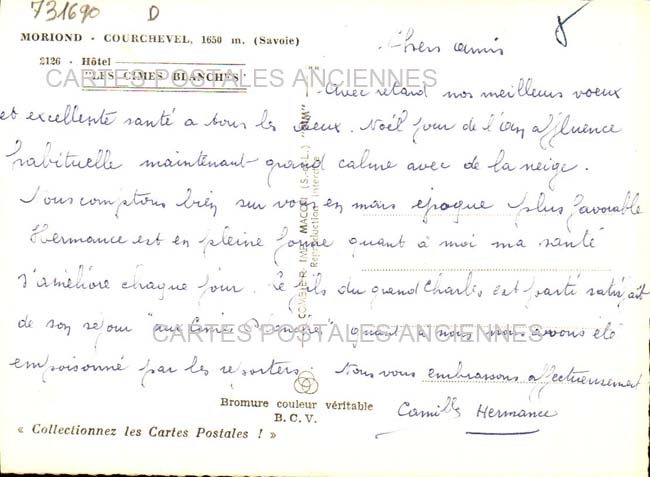 731690 D
MORIOND - COURCHEVEL, 1650 m. (Savoie)
2126 - Hôtel
"LES CIMES BLANCHES"
CARTES POSTALES ANCIENNES
Chers amis
Avec retard nos meilleurs voeux
et excellente santé a tous les deux. Noël jour de l'an affluence
habituelle maintenant grand calme avec de la neige.
Nous comptons bien sur vous en mars époque plus favorable
Hermance est en pleine forme quant à moi ma santé
s'améliore chaque jour. Le fils du grand Charles est parti satisfait
de son séjour "aux Cimes Blanches" quant à nous nous avons été
empoisonné par les reporters. Nous vous embrassons affectueusement
Camille Hermance
COMBIER IMP. MACON (S.-et-L.) "CIM"
Reproduction interdite
CARTES POSTALES ANCIENNES
Bromure couleur véritable
B.C.V.
« Collectionnez les Cartes Postales ! »